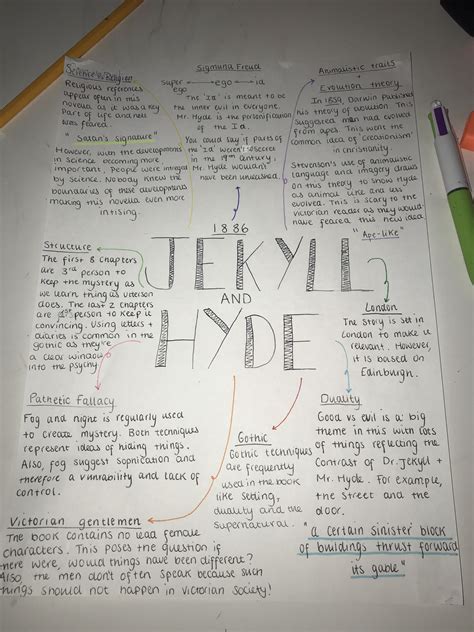 Science & Religion
Religious references
appear often in this
novella as it was a key
part of life and hell
was feared.
"Satan's signature"
However, with the developments
in science becoming more
important, people were intrigued
by science. Nobody knew the
boundaries of these developments
making this novella even more
intising.
Sigmund Freud
super ego id
ego
The 'Id' is meant to be
the inner evil in everyone.
Mr. Hyde is the personification
of the Id.
You could say if parts of
the 'Id' weren't discreet
in the 19th century,
Mr. Hyde wouldn't
have been unleashed.
Animalistic traits
+
Evolution theory
In 1859, Darwin published
his theory of evolution. This
suggested man had evolved
from apes. This went the
common idea of creationism
in christianity.
Stevenson's use of animalistic
language and imagery draws
on this theory to show Hyde
as animal like and less
evolved. This is scary to the
victorian reader as they would
have feared this new idea
"Ape-like"
1886
JEKYLL
AND
HYDE
Structure
The first 8 chapters
are 3rd person to
keep the mystery as
we learn things as Uterson
does. The last 2 chapters
are 1st person to keep it
convincing. Using letters +
diaries is common in the
gothic as they're
a clear window
into the psychy
London
The story is set in
London to make it
relevant. However,
it is based on
Edinburgh.
Pathetic Fallacy
Fog and night is regularly used
to create mystery. Both techniques
represent ideas of hiding things.
Also, fog suggest sophication and
therefore a vunrability and lack of
control.
Gothic
Gothic techniques
are frequently
used in the book
like setting,
duality and the
supernatural.
Duality
Good vs evil is a big
theme in this with lots
of things reflecting the
contrast of Dr. Jekyll +
Mr. Hyde. For example,
the street and the
door.
"a certain sinister block
of buildings thrust forward
its gable"
Victorian gentlemen
The book contains no lead female
characters. This poses the question if
there were, would things have been different?
Also, the men don't often speak because such
things should not happen in victorian society!